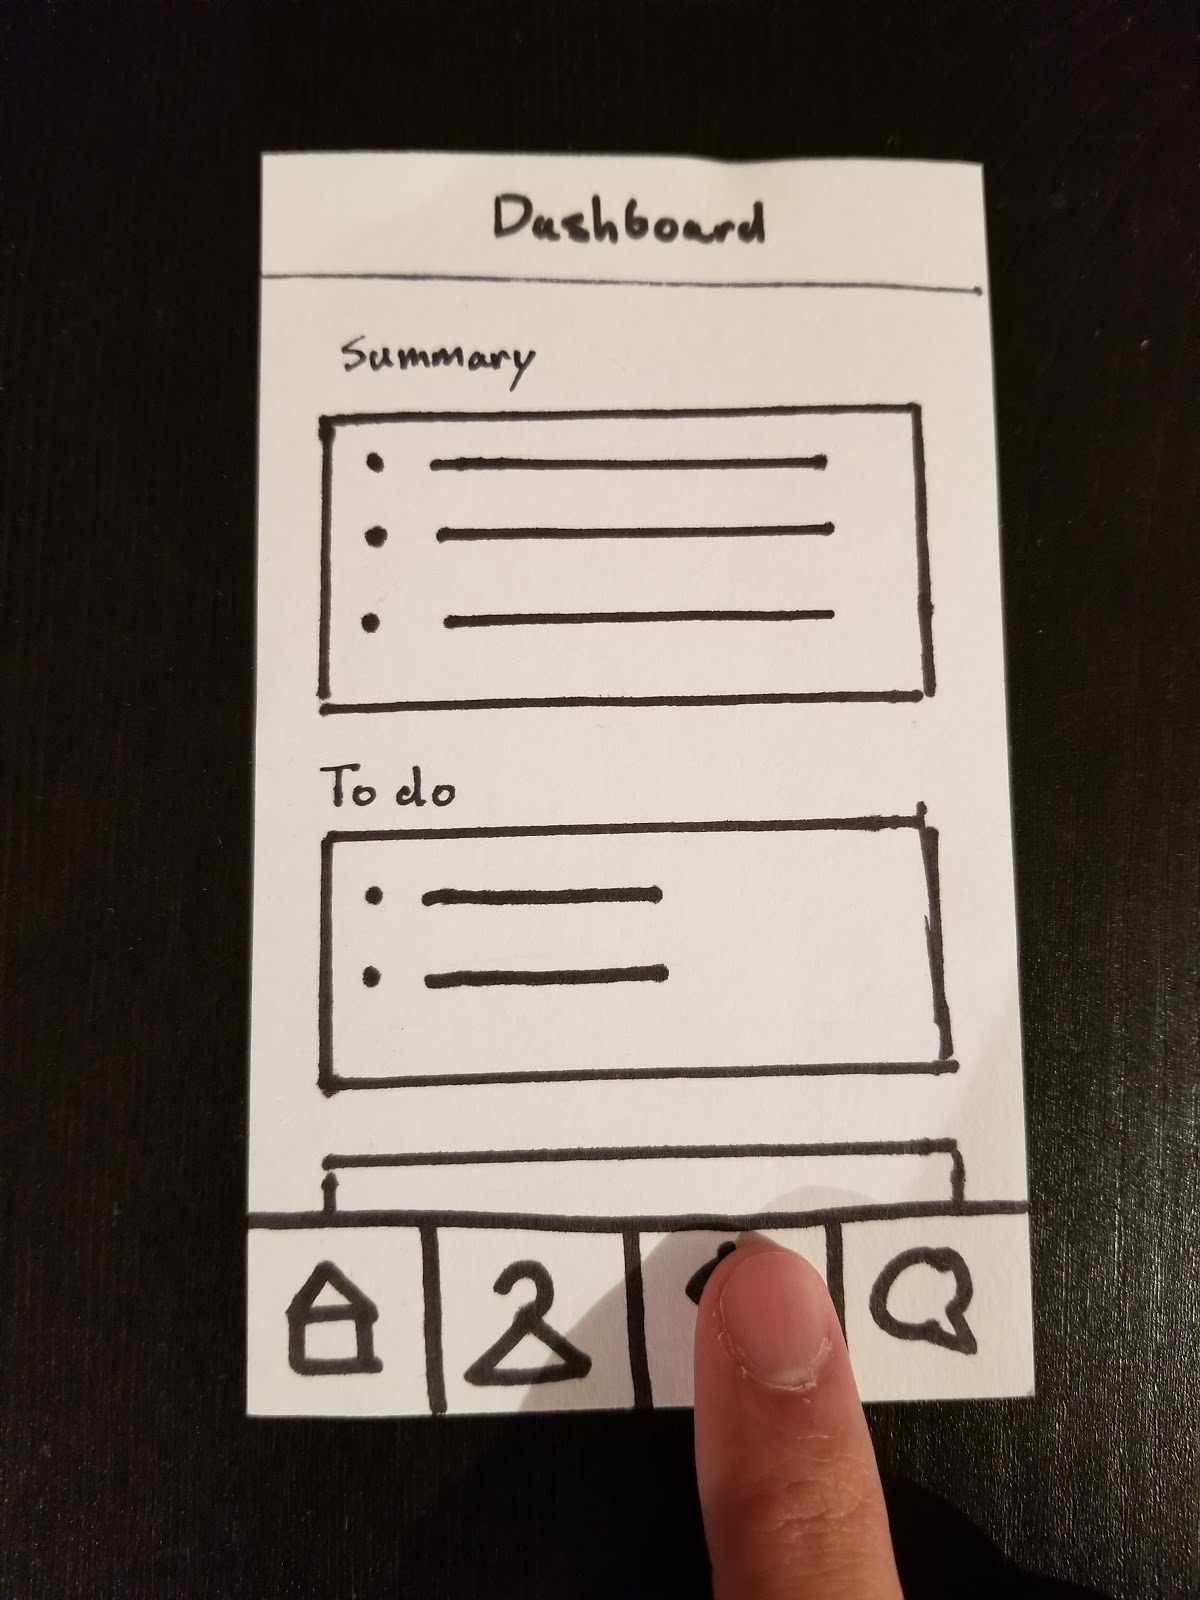 Dashboard
Summary
To do